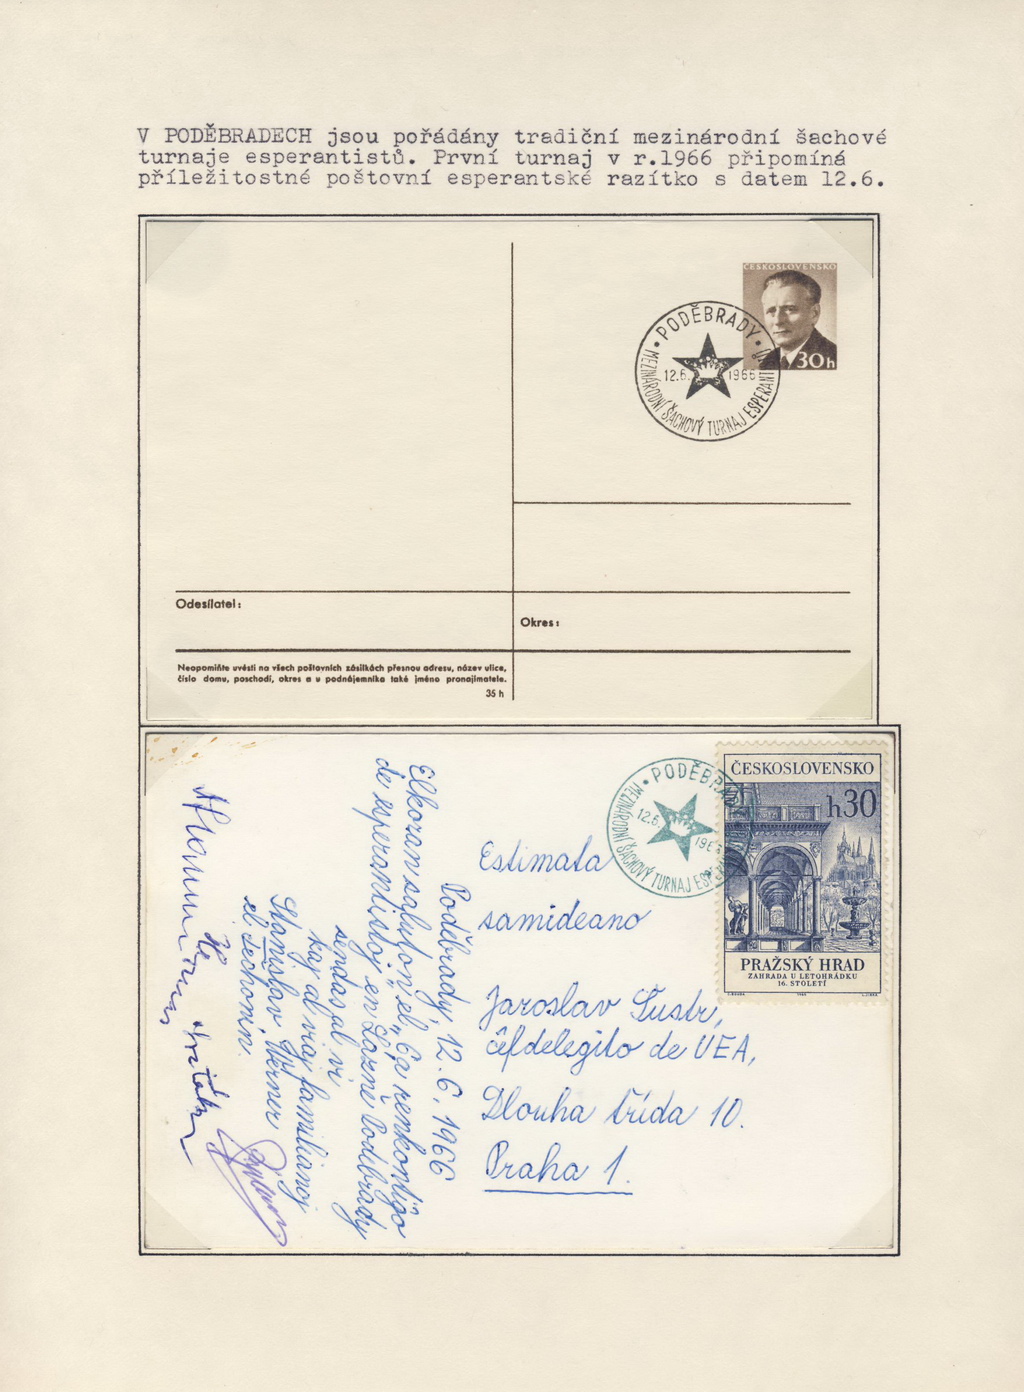 V PODĚBRADECH jsou pořádány tradiční mezinárodní šachové
turnaje esperantistů. První turnaj v r.1966 připomíná
příležitostné poštovní esperantské razítko s datem 12.6.
ČESKOSLOVENSKO
30h
PODĚBRADY
12.6. 1966
MEZINÁRODNÍ ŠACHOVÝ TURNAJ
Odesílatel:
Okres:
Neopomiňte uvésti na všech poštovních zásilkách přesnou adresu, název ulice,
číslo domu, poschodí, okres a u podnájemníka také jméno pronajímatele.
35 h
Poděbrady, 12.6.1966
Elkoran saluton el „6a renkontiĝo
de esperantistoj en Lázně Poděbrady
sendas al vi
kaj al viaj familianoj
Stanislav Werner
el
12.6. 196
MEZINÁRODNÍ ŠACHOVÝ TURNAJ
ČESKOSLOVENSKO
h30
PRAŽSKÝ HRAD
ZAHRADA U LETOHRÁDKU
16. STOLETÍ
Estimata
samideano
Jaroslav Šustr,
ĉefdelegito de UEA,
Dlouha třída 10.
Praha 1.